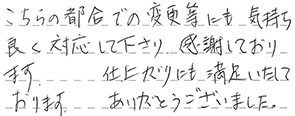 こちらの都合での変更等にも気持ち
良く対応して下さり感謝しており
ます。仕上がりにも満足いたして
おります。ありがとうございました。